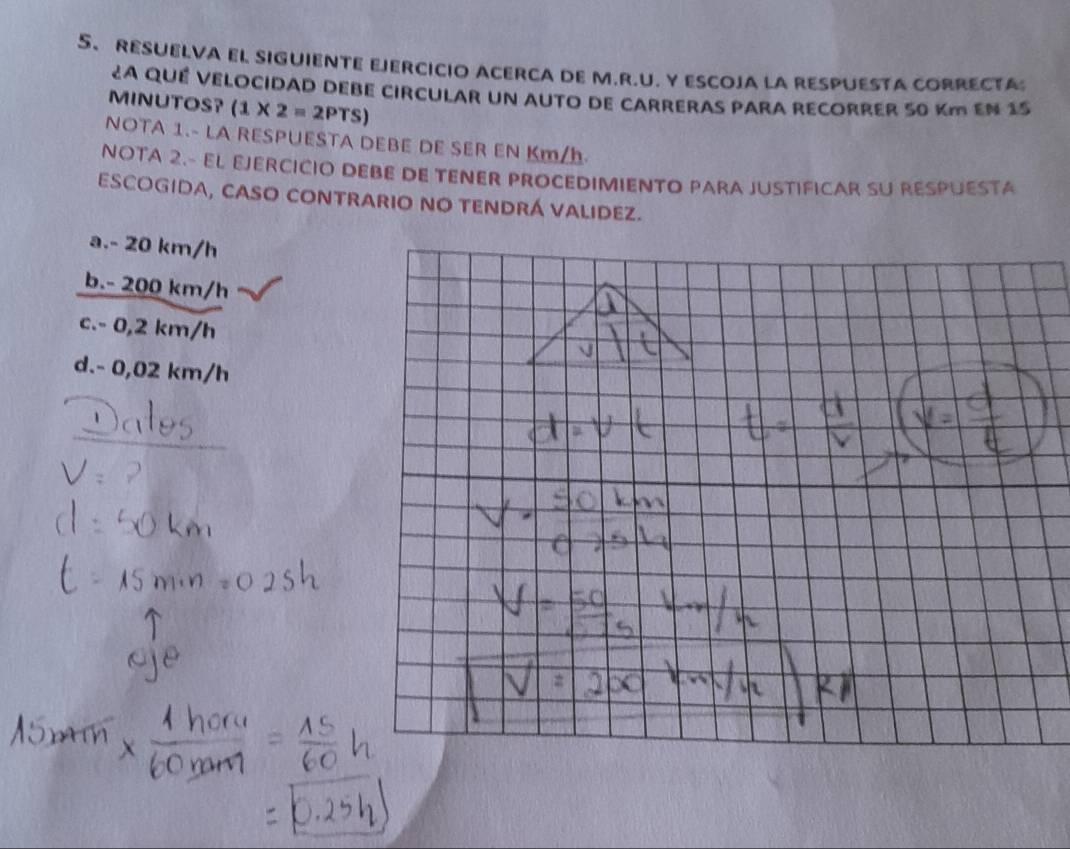 5. RESUELVA EL SIGUIENTE EJERCICIO ACERCA DE M.R.U. Y ESCOJA LA RESPUESTA CORRECTA:
¿A QUÉ VELOCIDAD DEBE CIRCULAR UN AUTO DE CARRERAS PARA RECORRER 50 Km EN 15
MINUTOS? (1 X 2 = 2PTS)
NOTA 1.- LA RESPUESTA DEBE DE SER EN Km/h.
NOTA 2.- EL EJERCICIO DEBE DE TENER PROCEDIMIENTO PARA JUSTIFICAR SU RESPUESTA
ESCOGIDA, CASO CONTRARIO NO TENDRÁ VALIDEZ.
a.- 20 km/h
b.- 200 km/h
c.- 0,2 km/h
d.- 0,02 km/h
Datos
V = ?
d = 50 km
t = 15 min = 0 25h
↑
ojo
15 min × 1 hora / 60 min = 15/60 h
= 0.25h
d
v t
d = v t t = d/v v = d/t
V = 50 km / 0 25h
V = 50 km/h
V = 200 km/h R//